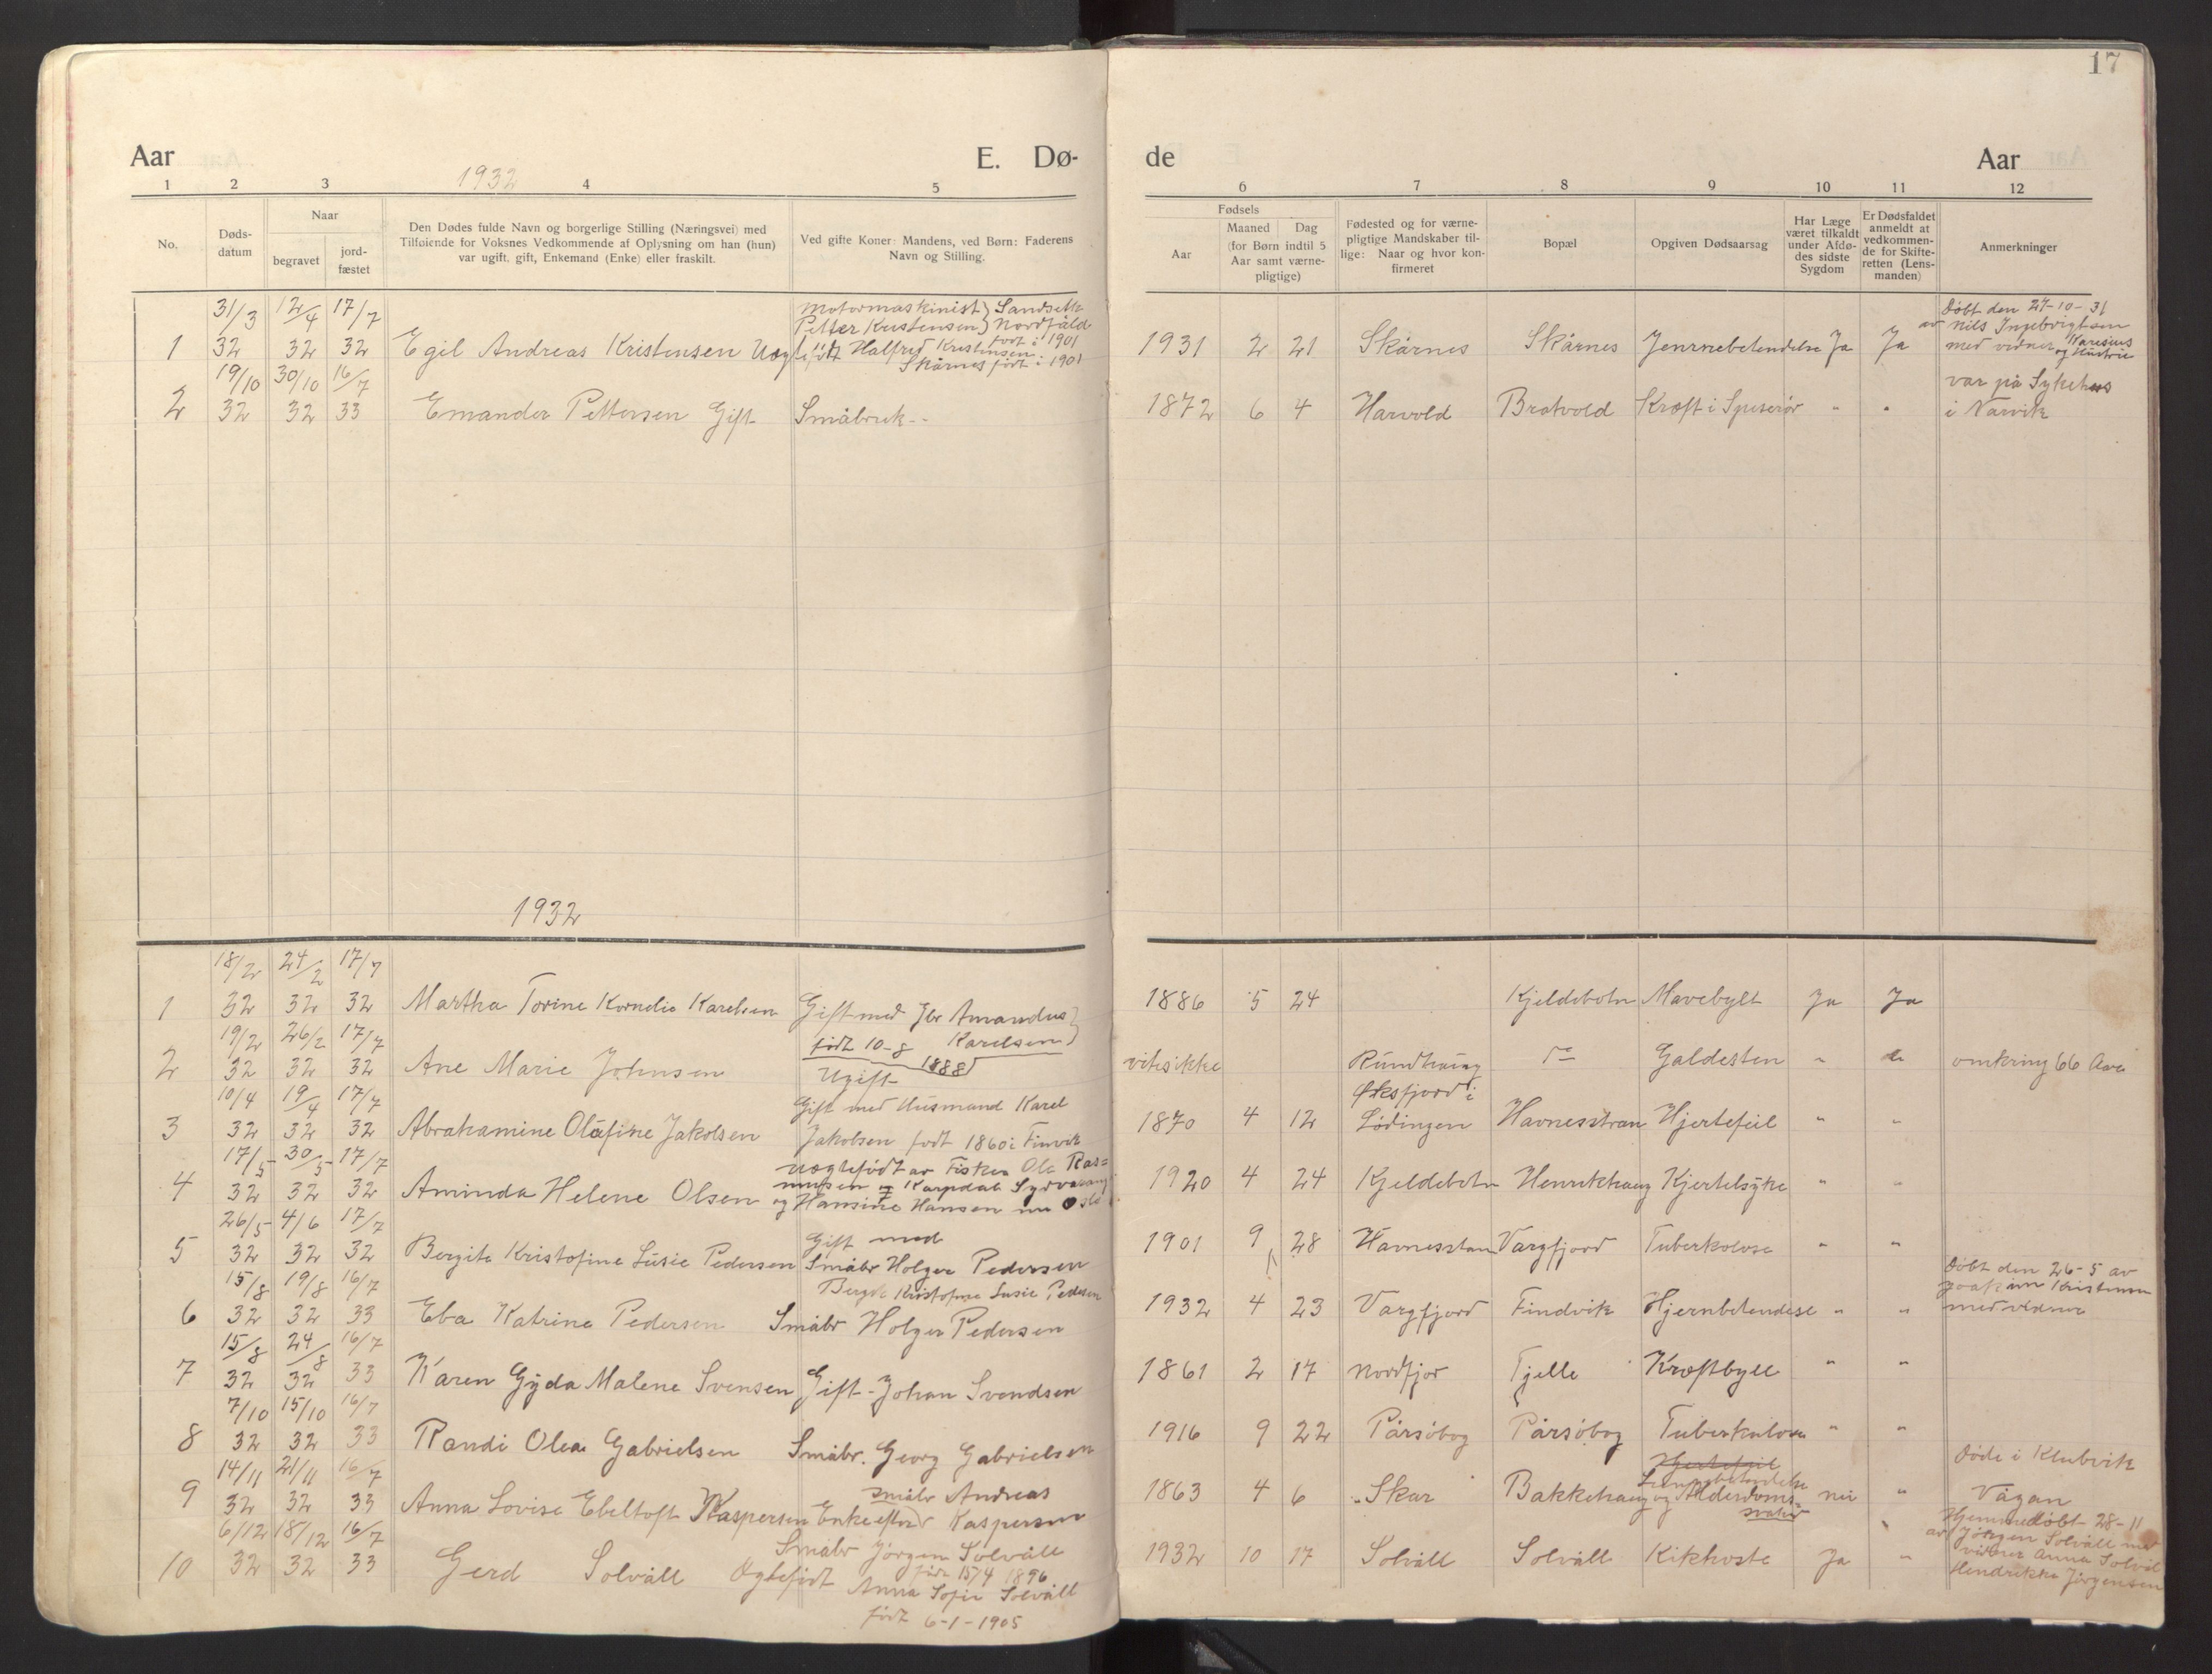 17
Aar
E. Dø-
de
Aar
1932
1
2
3
4
5
6
7
8
9
10
11
12
No.
Døds-
datum
Naar
begravet
jord-
fæstet
Den Dødes fulde Navn og borgerlige Stilling (Næringsvei) med
Tilføiende for Voksnes Vedkommende af Oplysning om han (hun)
var ugift, gift, Enkemand (Enke) eller fraskilt.
Ved gifte Koner: Mandens, ved Børn: Faderens
Navn og Stilling.
Fødsels
Aar
Maaned
Dag
(for Børn indtil 5
Aar samt værne-
pligtige)
Fødested og for værne-
pligtige Mandskaber til-
lige: Naar og hvor kon-
firmeret
Bopæl
Opgiven Dødsaarsag
Har Læge
været tilkaldt
under Afdø-
des sidste
Sygdom
Er Dødsfaldet
anmeldt at
vedkommen-
de for Skifte-
retten (Lens-
manden)
Anmerkninger
31/3 12/4 17/7
Motormaskinist } Sandsett
Petter Kristensen } Nordfäld
født i 1901
Døbt den 27-10-31
av Nils Ingebrigtsen
1 32 32 32 Egil Andreas Kristensen Uegtefött Halfred Kristensen
Skårnes født i 1901
1931 2 21 Skårnes Skårnes Jernnebetendelse Ja Ja med vidner
og Hustru
19/10 30/10 16/7
var på Sykehus
2 32 32 33 Emander Pettersen Gift Småbruk--
1872 6 4 Harvold Bratvold Kræft i Spiserör " " i Narvik
1932
18/2 24/2 17/7
1 32 32 32 Martha Torine Kornelie Karelsen Gift med Jbr Amandus }
Karelsen }
født 10-8 1888
1886 5 24 Kjeldebotn Mavebylt Ja Ja
19/2 26/2 17/7
2 32 32 32 Ane Marie Johnsen Ugift
vites ikke Rundhaug do Galdesten " " omkring 66 Aar
10/4 19/4 17/7
Gift med Husmand Karel
Øksfjord i
3 32 32 32 Abrahamine Oläfine Jakobsen Jakobsen født 1860 i Finvik
1870 4 12 Lødingen Havnesstran Hjertefeil " "
17/5 30/5 17/7
uægtefödt av Fisker Ole Ras=
mussen
4 32 32 32 Aminda Helene Olsen og Hansine Hansen nu Oslo
1920 4 24 Kjeldebotn Henrikhaug Kjertelsyke " "
26/5 4/6 17/7
Gift med
5 32 32 32 Bergite Kristofine Lusie Pedersen Småbr Holger Pedersen
1901 9 28 Havnesstan Vargfjord Tuberkolose " "
15/8 19/8 16/7
Kristofine Lusie Pedersen
Døbt den 26-5 av
Joakim Kristensen
6 32 32 33 Eba Katrine Pedersen Småbr Holger Pedersen
1932 4 23 Vargfjord Findvik Hjernbetendese " " med vidner
15/8 24/8 16/7
7 32 32 33 Karen Gyda Malene Svensen Gift - Johan Svendsen
1861 2 17 Nordfjor Tjelle Kræftbyll " "
7/10 15/10 16/7
8 32 32 33 Randi Olea Gabrielsen Småbr. Georg Gabrielsen
1916 9 22 Pårsöbog Pårsöbog Tuberkulose " "
14/11 21/11 16/7
småbr Andreas
Hjertefeil
Lungebetendelse
Døde i Klubvik
9 32 32 33 Anna Lovise Ebeltoft Kaspersen Enke efter Kaspersen
1863 4 6 Skar Bakkehaug og Alderdoms=
svakhed
nei " Vågan
6/12 18/12 16/7
Småbr Jörgen Solväll
född 15/4 1896
Hjemmedöbt 28-11
av Jörgen Solväll med
vidner Anna Solväl
Hendrikke Jörgensen
10 32 32 33 Gerd Solväll Ægtefödt Anna Sofie Solväll
födt 6-1-1905
1932 10 17 Solväll Solväll Kikhoste Ja "